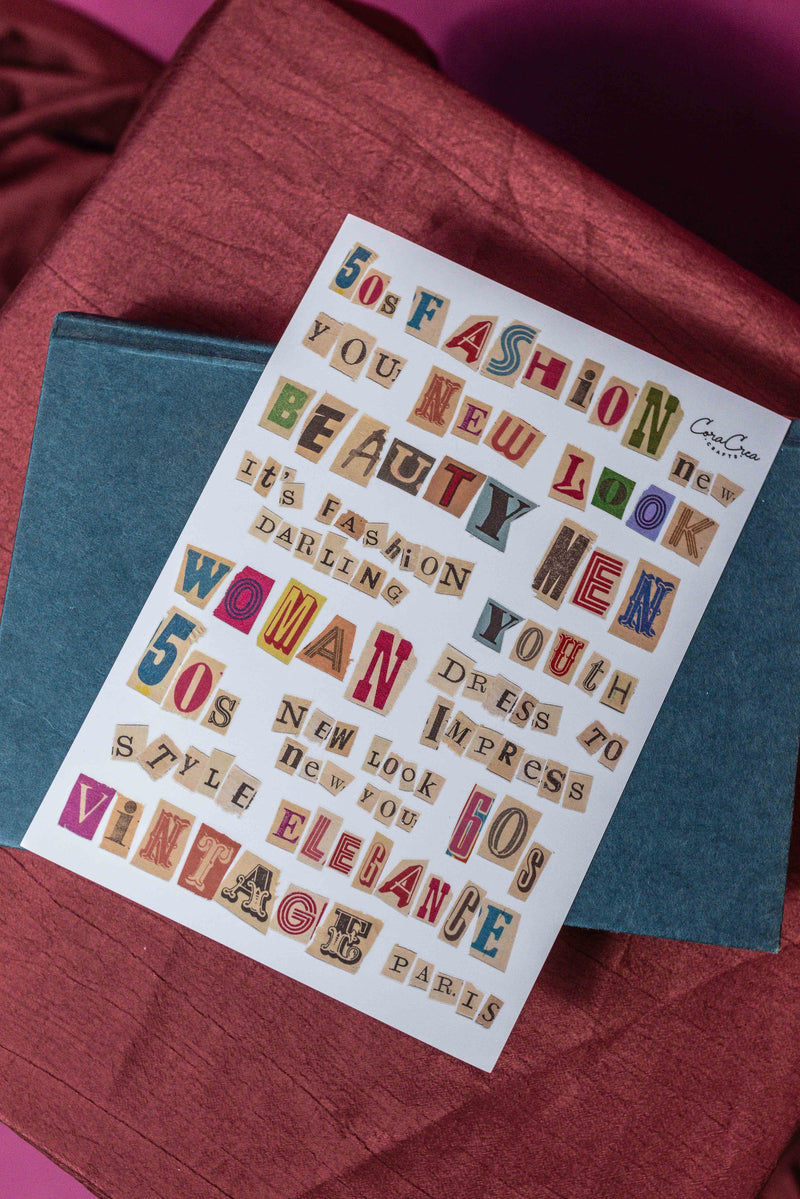 50s FASHION
CoraCrea
CRAFTS
YOU NEW LOOK
new
BEAUTY MEN
IT'S FASHION
DARLING
WOMAN YOUTH
50s DRESS TO
IMPRESS
STYLE NEW LOOK
new YOU
60s
VINTAGE ELEGANCE
PARIS